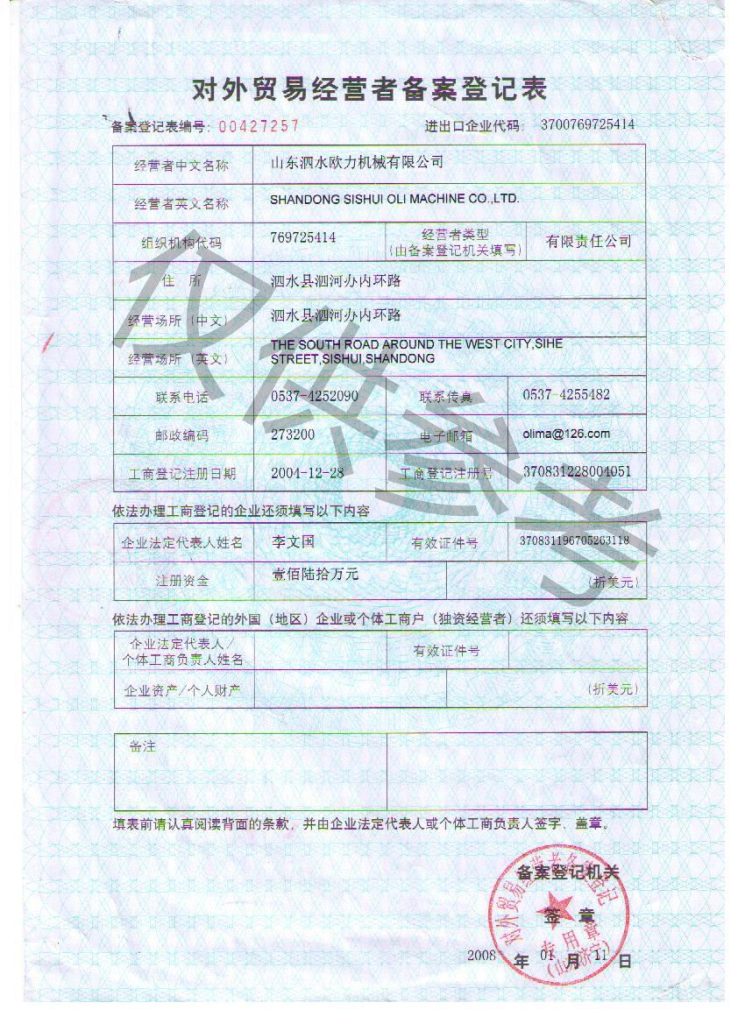 对外贸易经营者备案登记表
备案登记表编号: 00427257 进出口企业代码: 3700769725414
经营者中文名称 山东泗水欧力机械有限公司
经营者英文名称 SHANDONG SISHUI OLI MACHINE CO.,LTD.
组织机构代码 769725414 经营者类型 (由备案登记机关填写) 有限责任公司
住 所 泗水县泗河办内环路
经营场所（中文） 泗水县泗河办内环路
经营场所（英文） THE SOUTH ROAD AROUND THE WEST CITY,SIHE
STREET,SISHUI,SHANDONG
联系电话 0537-4252090 联系传真 0537-4255482
邮政编码 273200 电子邮箱 olima@126.com
工商登记注册日期 2004-12-28 工商登记注册号 370831228004051
依法办理工商登记的企业还须填写以下内容
企业法定代表人姓名 李文国 有效证件号 370831196705263118
注册资金 壹佰陆拾万元 (折美元)
依法办理工商登记的外国（地区）企业或个体工商户（独资经营者）还须填写以下内容
企业法定代表人/
个体工商负责人姓名 有效证件号
企业资产/个人财产 (折美元)
备注
填表前请认真阅读背面的条款，并由企业法定代表人或个体工商负责人签字、盖章。
备案登记机关
签 章
2008 年 01 月 11 日
对外贸易经营者备案登记
专用章
仅供参考